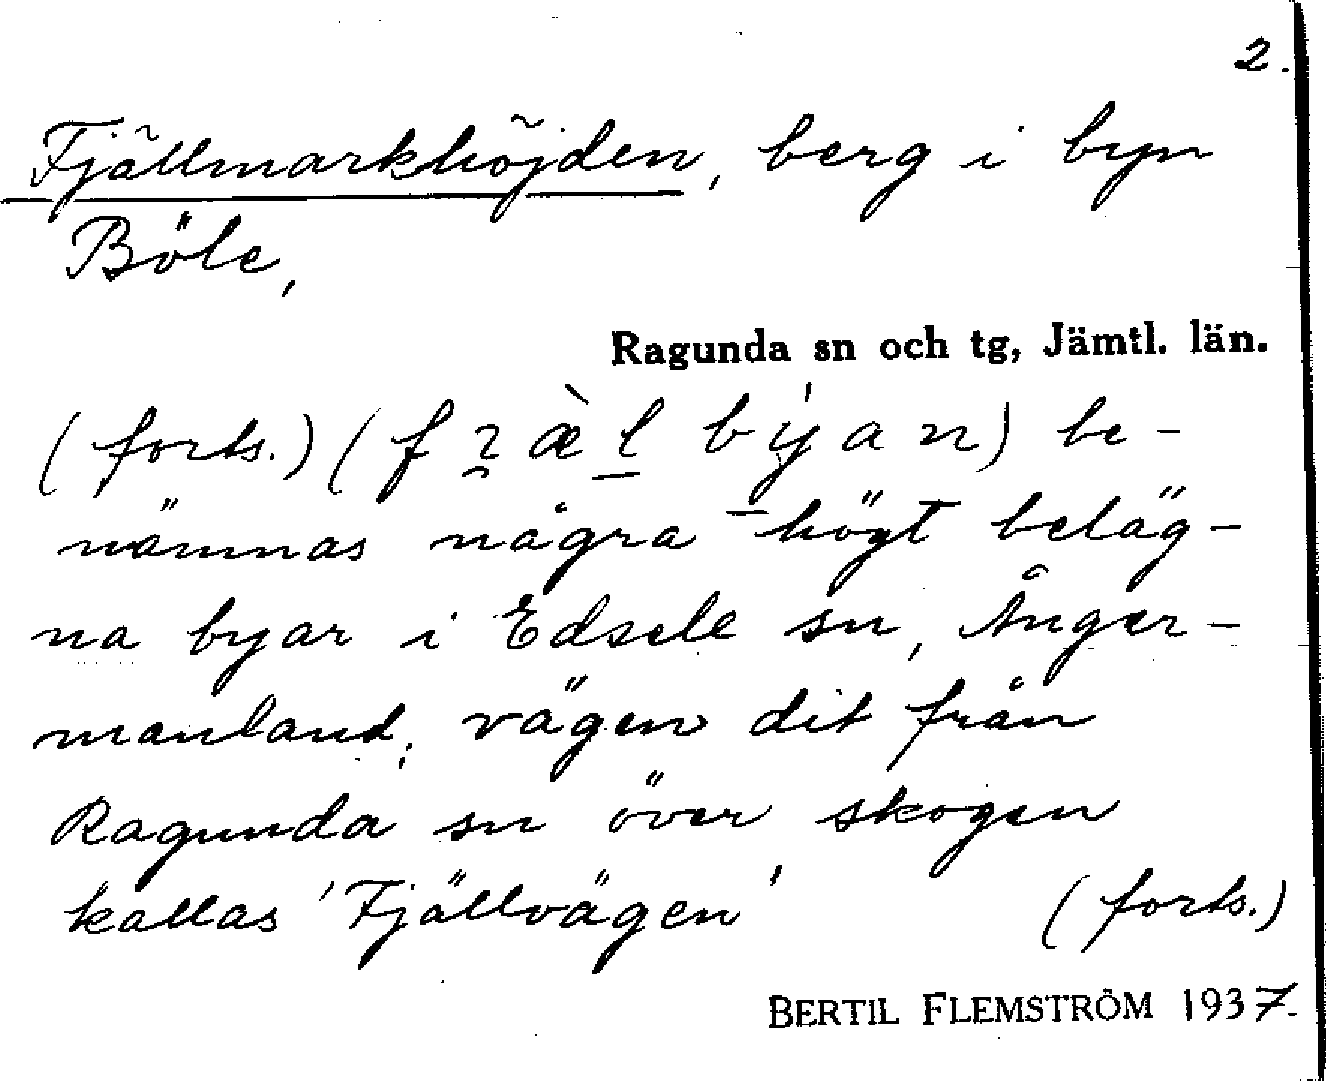 2.
Fjällmarkhöjden, berg i byn
Böle,
Ragunda sn och tg, Jämtl. län.
(forts.) ( be-
nämnas några högt beläg-
na byar i Edsele sn, Ånger-
manland; vägen dit från
Ragunda sn över skogen
kallas 'Fjällvägen' (forts.)
BERTIL FLEMSTRÖM 1937.